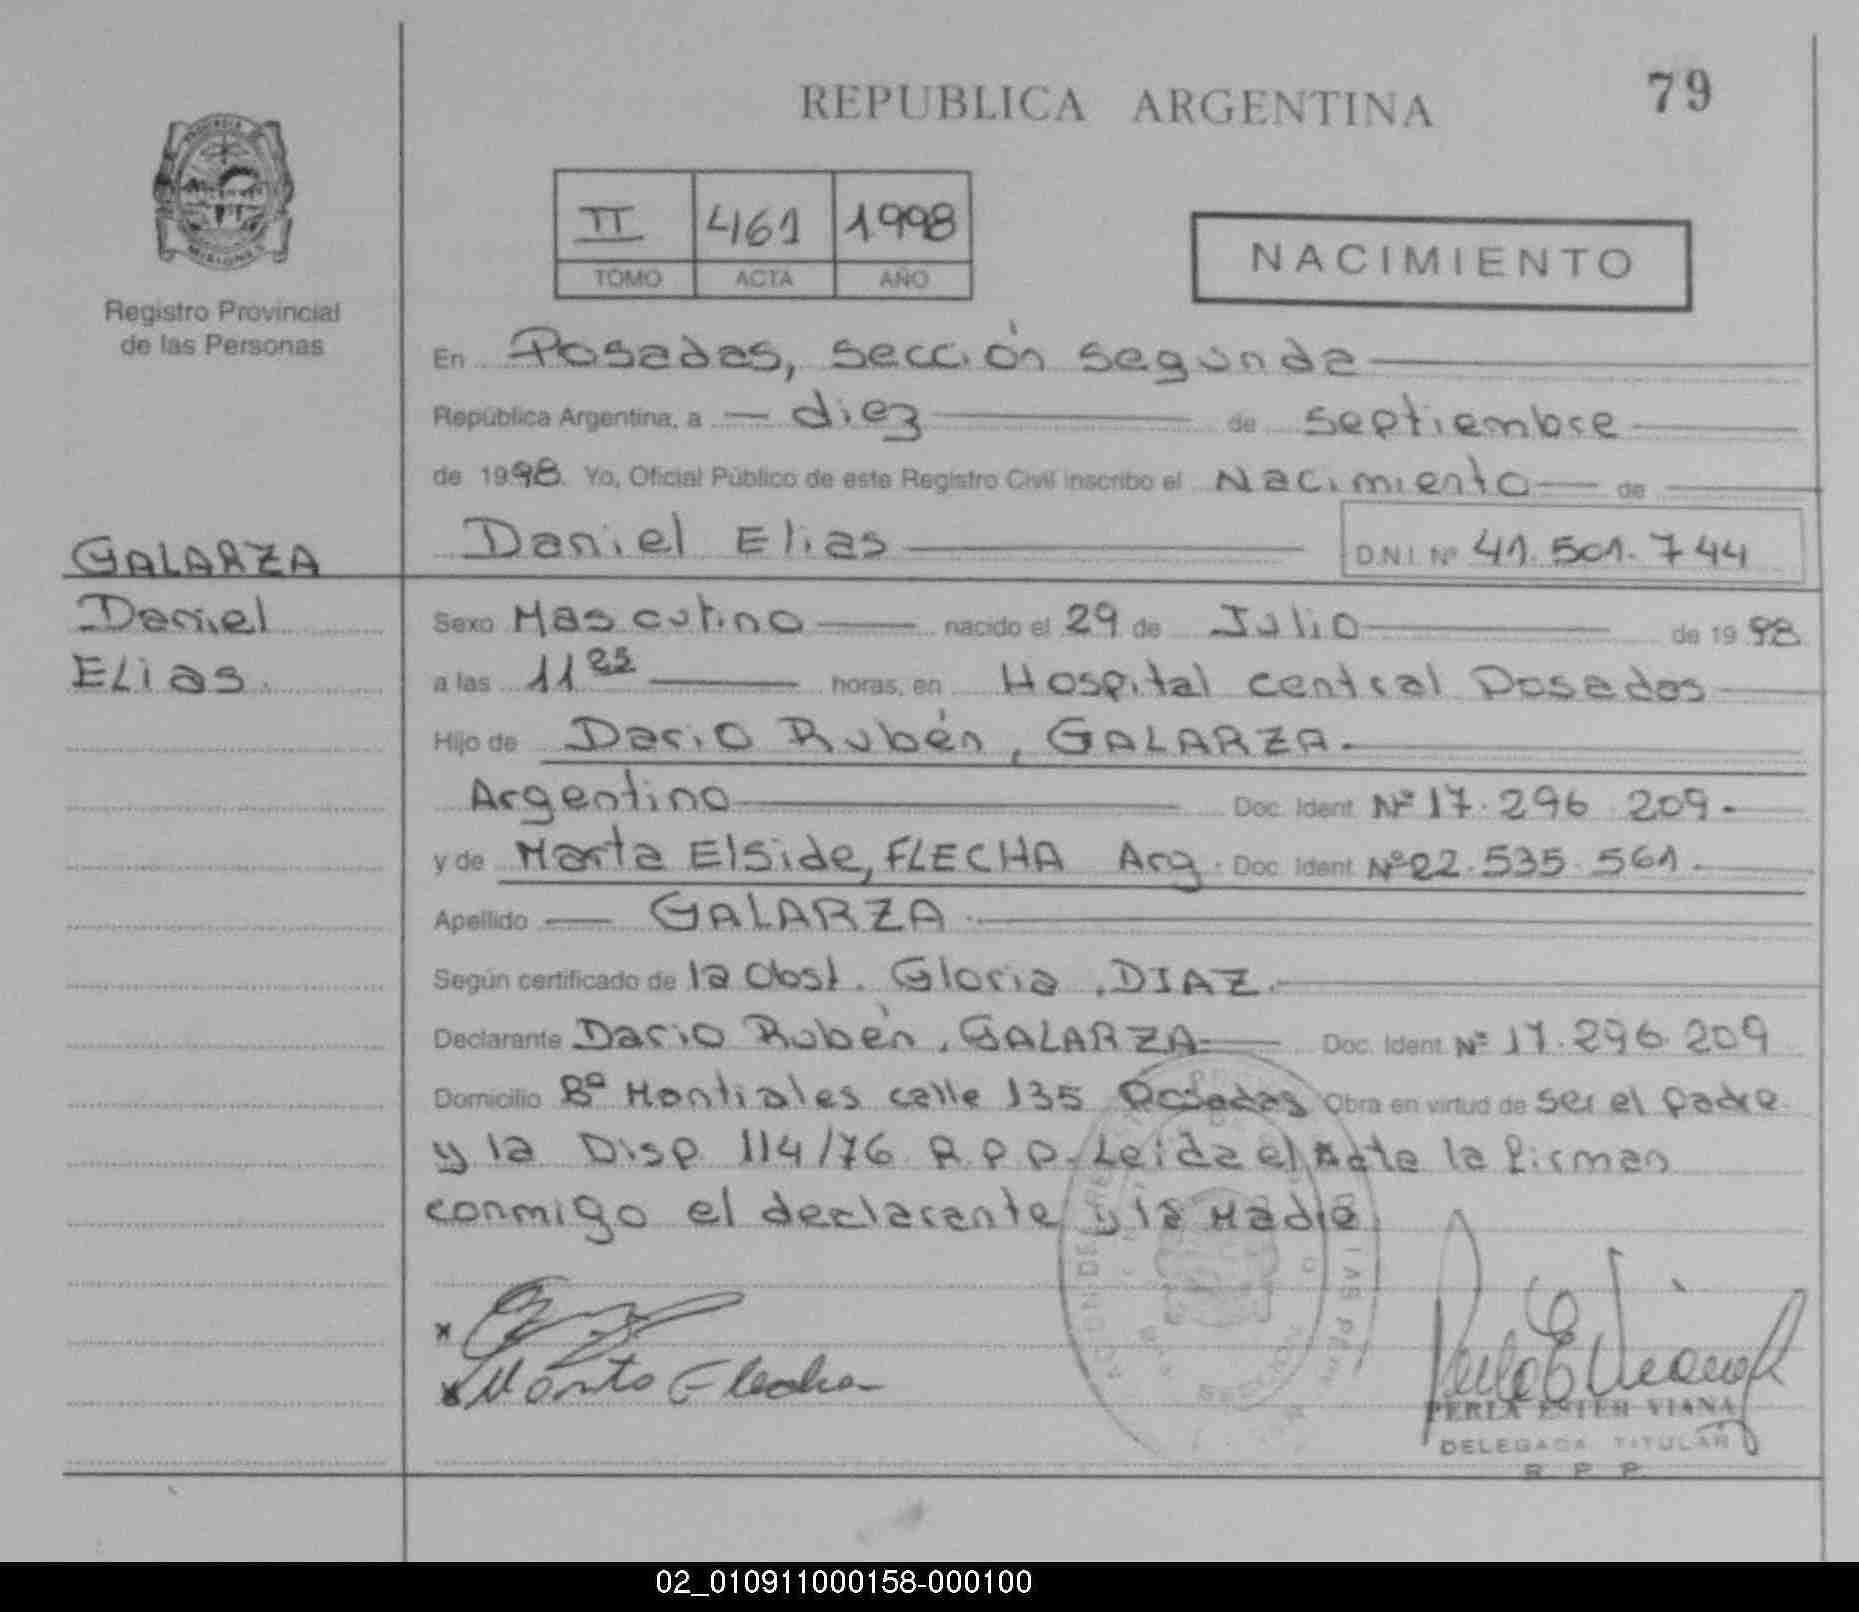 REPUBLICA ARGENTINA
79
II 461 1998
TOMO ACTA AÑO
NACIMIENTO
Registro Provincial
de las Personas
En Posadas, sección segunda
República Argentina, a diez de septiembre
de 1998. Yo, Oficial Público de este Registro Civil inscribo el Nacimiento de
Daniel Elias D.N.I. Nº 41.501.744
GALARZA
Daniel
Elias.
Sexo Masculino nacido el 29 de Julio de 1998
a las 11 horas, en Hospital central Posadas
Hijo de Dario Rubén, GALARZA.
Argentino Doc. Ident. Nº 17.296.209.
y de Marta Elside, FLECHA Arg. Doc. Ident. Nº 22.535.561.
Apellido GALARZA.
Según certificado de la Obst. Gloria, DIAZ.
Declarante Dario Rubén, GALARZA Doc. Ident. Nº 17.296.209
Domicilio Bº calle 135 Posadas Obra en virtud de ser el padre
y la Disp. 114/76 R.P.P. Leida el Acta la firman
conmigo el declarante y la Madre
Marta Flecha
PERLA ESTER VIANA
DELEGADA TITULAR
R. P. P.
02_010911000158-000100